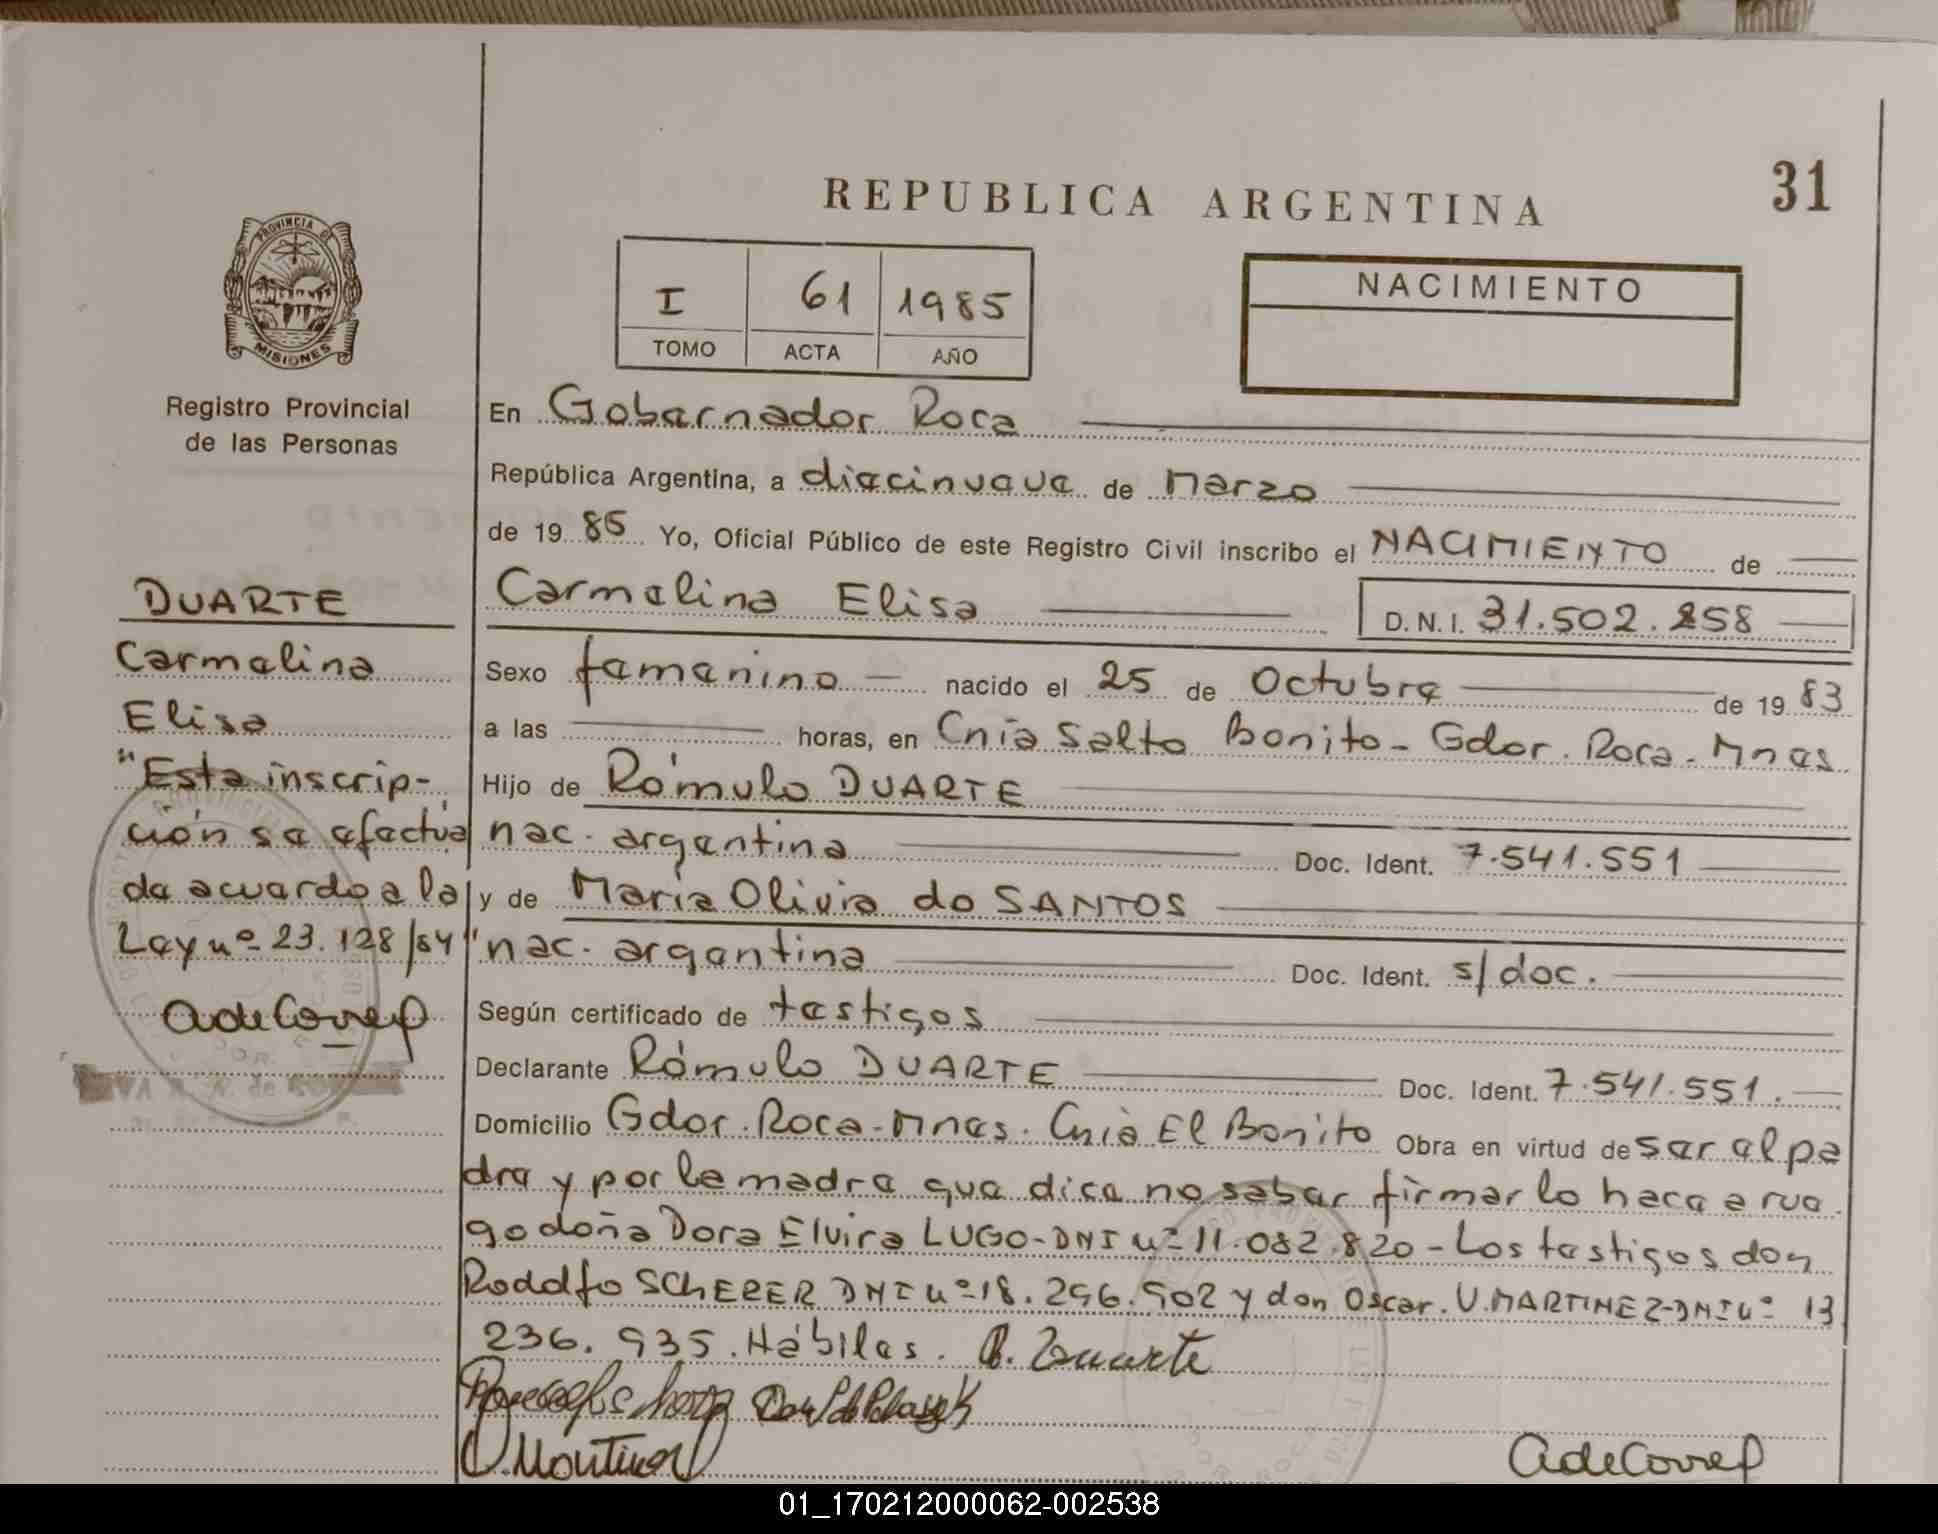 REPUBLICA ARGENTINA
31
PROVINCIA DE
MISIONES
Registro Provincial
de las Personas
I 61 1985
TOMO ACTA AÑO
NACIMIENTO
En Gobernador Roca
República Argentina, a diecinueve de Marzo
de 19 85 Yo, Oficial Público de este Registro Civil inscribo el NACIMIENTO de
Carmelina Elisa D.N.I. 31.502.258
Sexo femenino nacido el 25 de Octubre de 19 83
a las horas, en Cnia Salto Bonito - Gdor. Roca - Mnes
Hijo de Rómulo DUARTE
nac. argentina Doc. Ident. 7.541.551
y de María Olivia do SANTOS
nac. argentina Doc. Ident. s/doc.
Según certificado de testigos
Declarante Rómulo DUARTE Doc. Ident. 7.541.551.
Domicilio Gdor. Roca - Mnes. Cnia El Bonito Obra en virtud de ser el pa
dre y por la madre que dice no saber firmar lo hace a rue
go doña Dora Elvira LUGO - DNI nº 11.082.820 - Los testigos don
Rodolfo SCHERER DNI nº 18.296.902 y don Oscar. V. MARTINEZ - DNI nº 13
236.935. Hábiles. R. Duarte
DUARTE
Carmelina
Elisa
"Esta inscrip-
ción se efectúa
de acuerdo a la
Ley nº 23.128/84"
01_170212000062-002538